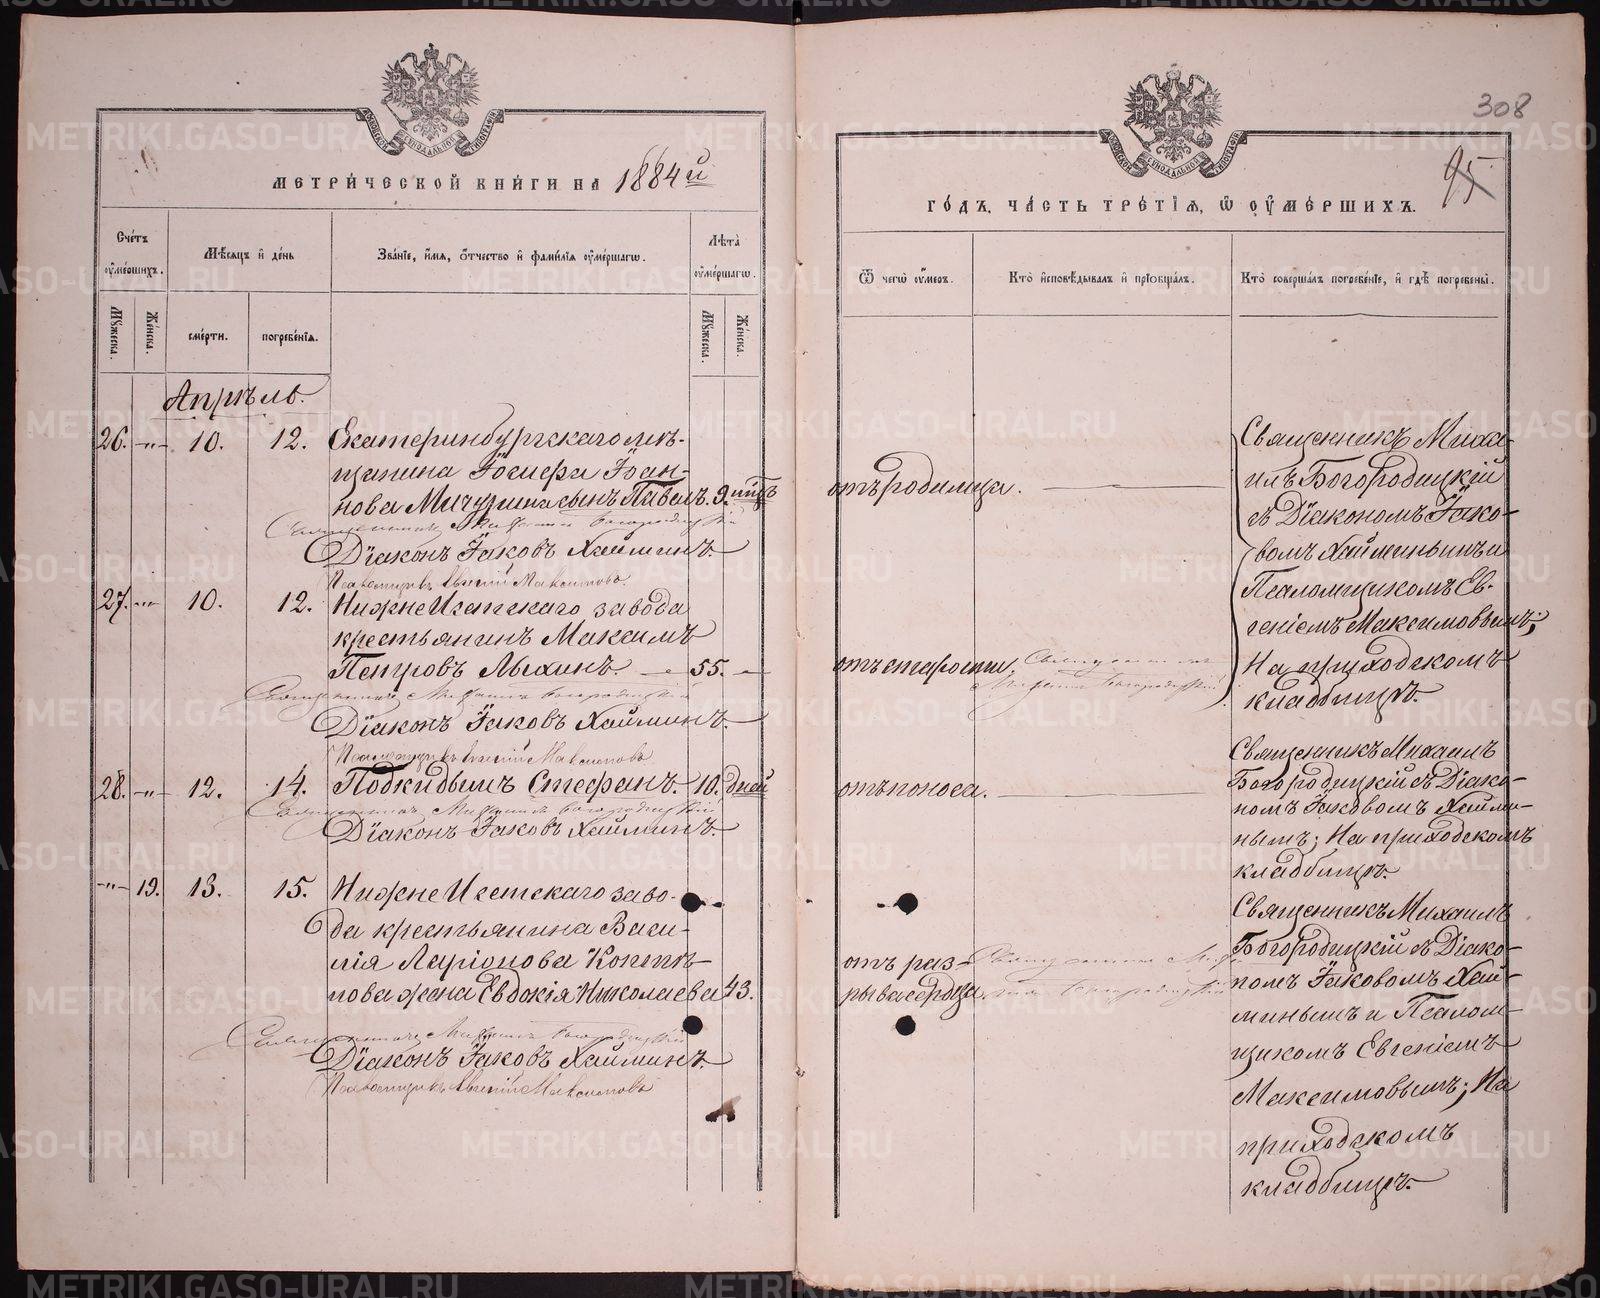 МЕТРИЧЕСКОЙ КНИГИ НА 1884й
Счетъ умершихъ.
Месяцъ и день
Званіе, имя, отчество и фамилія умершаго.
Лѣта умершаго.
Мужеска.
Женска.
смерти.
погребенія.
Мужеска.
Женска.
Апрѣль.
26. -"- 10. 12. Екатеринбургскаго мѣ-
щанина Іосифа Іоан-
нова Мичурина сынъ Павелъ. 9.
Священникъ Михаилъ Богородицкій
Діаконъ Іаковъ Хайминъ
Псаломщикъ Евгеній Максимовъ
27. -"- 10. 12. НижнеИсетскаго завода
крестьянинъ Максимъ
Петровъ Лыхинъ. 55.
Священникъ Михаилъ Богородицкій
Діаконъ Іаковъ Хайминъ
Псаломщикъ Евгеній Максимовъ
28. -"- 12. 14. Подкидышъ Стефанъ. 10. дней
Священникъ Михаилъ Богородицкій
Діаконъ Іаковъ Хайминъ
-"- 19. 13. 15. НижнеИсетскаго заво-
да крестьянина Васи-
лія Ларіонова Коптѣ-
лова жена Евдокія Николаева 43.
Священникъ Михаилъ Богородицкій
Діаконъ Іаковъ Хайминъ.
Псаломщикъ Евгеній Максимовъ
308
95
ГОДЪ, ЧАСТЬ ТРЕТІЯ, Ѿ УМЕРШИХЪ.
Ѿ чего умеръ.
Кто исповѣдывалъ и пріобщалъ.
Кто совершалъ погребеніе, и гдѣ погребены.
отъ родимца.
Священникъ Миха-
илъ Богородицкій
съ Діакономъ Іако-
вомъ Хайминымъ и
Псаломщикомъ Ев-
геніемъ Максимовымъ;
На приходскомъ
кладбищѣ.
отъ старости
Священникъ
Михаилъ Богородицкій
отъ поноса.
Священникъ Михаилъ
Богородицкій съ Діако-
номъ Іаковомъ Хайми-
нымъ; На приходскомъ
кладбищѣ.
отъ раз-
рыва сердца.
Священникъ Миха-
илъ Богородицкій
Священникъ Михаилъ
Богородицкій съ Діако-
номъ Іаковомъ Хай-
минымъ и Псалом-
щикомъ Евгеніемъ
Максимовымъ; На
приходскомъ
кладбищѣ.
METRIKI.GASO-URAL.RU